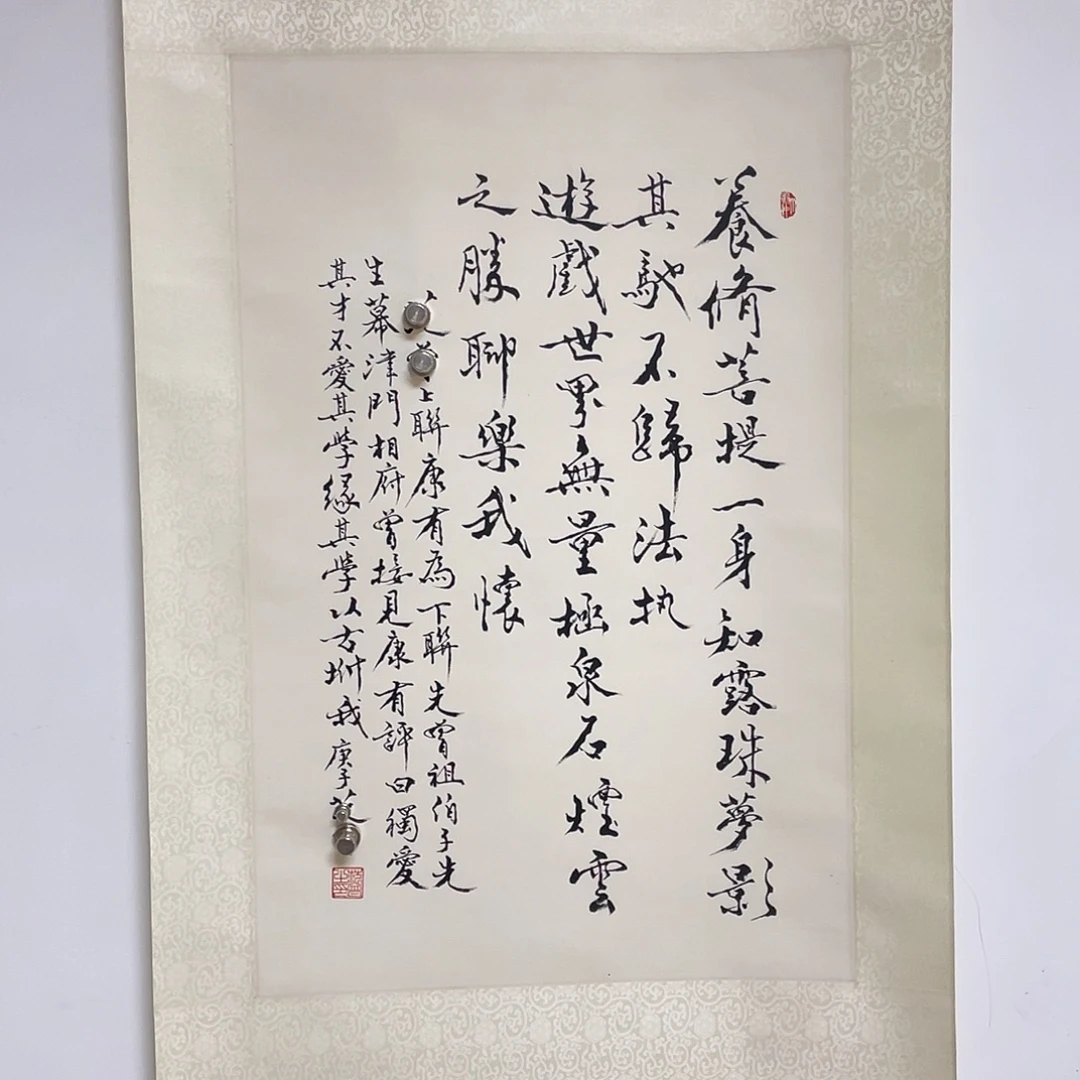 養脩菩提一身知露珠夢影
其馳不歸法执
遊戲世界無量極泉石煙雲
之勝聊樂我懷
上聯康有為下聯先曾祖伯子先
生幕津門相府曾接見康有評曰獨愛
其才不愛其學緣其學以古坿我庚子